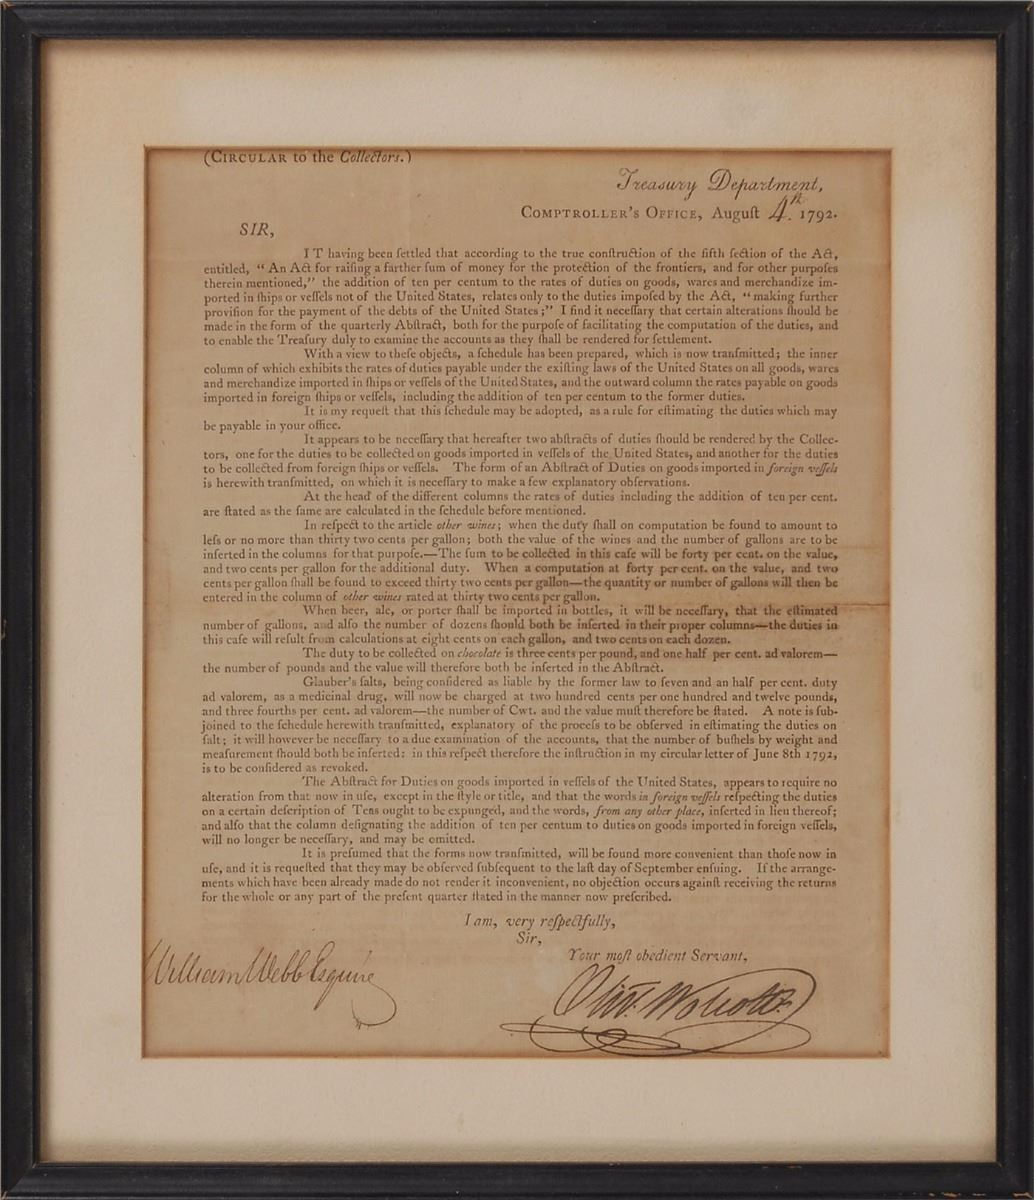 (CIRCULAR to the Collectors.)
Treasury Department,
COMPTROLLER'S OFFICE, Auguſt 4th. 1792.
SIR,
IT having been ſettled that according to the true conſtruction of the fifth ſection of the Act,
entitled, “ An Act for raiſing a farther ſum of money for the protection of the frontiers, and for other purpoſes
therein mentioned,” the addition of ten per centum to the rates of duties on goods, wares and merchandize im-
ported in ſhips or veſſels not of the United States, relates only to the duties impoſed by the Act, “ making further
proviſion for the payment of the debts of the United States ;” I find it neceſſary that certain alterations ſhould be
made in the form of the quarterly Abſtract, both for the purpoſe of facilitating the computation of the duties, and
to enable the Treaſury duly to examine the accounts as they ſhall be rendered for ſettlement.
With a view to theſe objects, a ſchedule has been prepared, which is now tranſmitted; the inner
column of which exhibits the rates of duties payable under the exiſting laws of the United States on all goods, wares
and merchandize imported in ſhips or veſſels of the United States, and the outward column the rates payable on goods
imported in foreign ſhips or veſſels, including the addition of ten per centum to the former duties.
It is my requeſt that this ſchedule may be adopted, as a rule for eſtimating the duties which may
be payable in your office.
It appears to be neceſſary that hereafter two abſtracts of duties ſhould be rendered by the Collec-
tors, one for the duties to be collected on goods imported in veſſels of the United States, and another for the duties
to be collected from foreign ſhips or veſſels. The form of an Abſtract of Duties on goods imported in foreign veſſels
is herewith tranſmitted, on which it is neceſſary to make a few explanatory obſervations.
At the head of the different columns the rates of duties including the addition of ten per cent.
are ſtated as the ſame are calculated in the ſchedule before mentioned.
In reſpect to the article other wines; when the duty ſhall on computation be found to amount to
leſs or no more than thirty two cents per gallon; both the value of the wines and the number of gallons are to be
inſerted in the columns for that purpoſe.—The ſum to be collected in this caſe will be forty per cent. on the value,
and two cents per gallon for the additional duty. When a computation at forty per cent. on the value, and two
cents per gallon ſhall be found to exceed thirty two cents per gallon—the quantity or number of gallons will then be
entered in the column of other wines rated at thirty two cents per gallon.
When beer, ale, or porter ſhall be imported in bottles, it will be neceſſary, that the eſtimated
number of gallons, and alſo the number of dozens ſhould both be inſerted in their proper columns—the duties in
this caſe will reſult from calculations at eight cents on each gallon, and two cents on each dozen.
The duty to be collected on chocolate is three cents per pound, and one half per cent. ad valorem—
the number of pounds and the value will therefore both be inſerted in the Abſtract.
Glauber's ſalts, being conſidered as liable by the former law to ſeven and an half per cent. duty
ad valorem, as a medicinal drug, will now be charged at two hundred cents per one hundred and twelve pounds,
and three fourths per cent. ad valorem—the number of Cwt. and the value muſt therefore be ſtated. A note is ſub-
joined to the ſchedule herewith tranſmitted, explanatory of the proceſs to be obſerved in eſtimating the duties on
ſalt; it will however be neceſſary to a due examination of the accounts, that the number of buſhels by weight and
meaſurement ſhould both be inſerted: in this reſpect therefore the inſtruction in my circular letter of June 8th 1792,
is to be conſidered as revoked.
The Abſtract for Duties on goods imported in veſſels of the United States, appears to require no
alteration from that now in uſe, except in the ſtyle or title, and that the words in foreign veſſels reſpecting the duties
on a certain deſcription of Teas ought to be expunged, and the words, from any other place, inſerted in lieu thereof;
and alſo that the column deſignating the addition of ten per centum to duties on goods imported in foreign veſſels,
will no longer be neceſſary, and may be omitted.
It is preſumed that the forms now tranſmitted, will be found more convenient than thoſe now in
uſe, and it is requeſted that they may be obſerved ſubſequent to the laſt day of September enſuing. If the arrange-
ments which have been already made do not render it inconvenient, no objection occurs againſt receiving the returns
for the whole or any part of the preſent quarter ſtated in the manner now preſcribed.
I am, very reſpectfully,
Sir,
Your moſt obedient Servant,
William Webb Esquire
Oliv. Wolcott